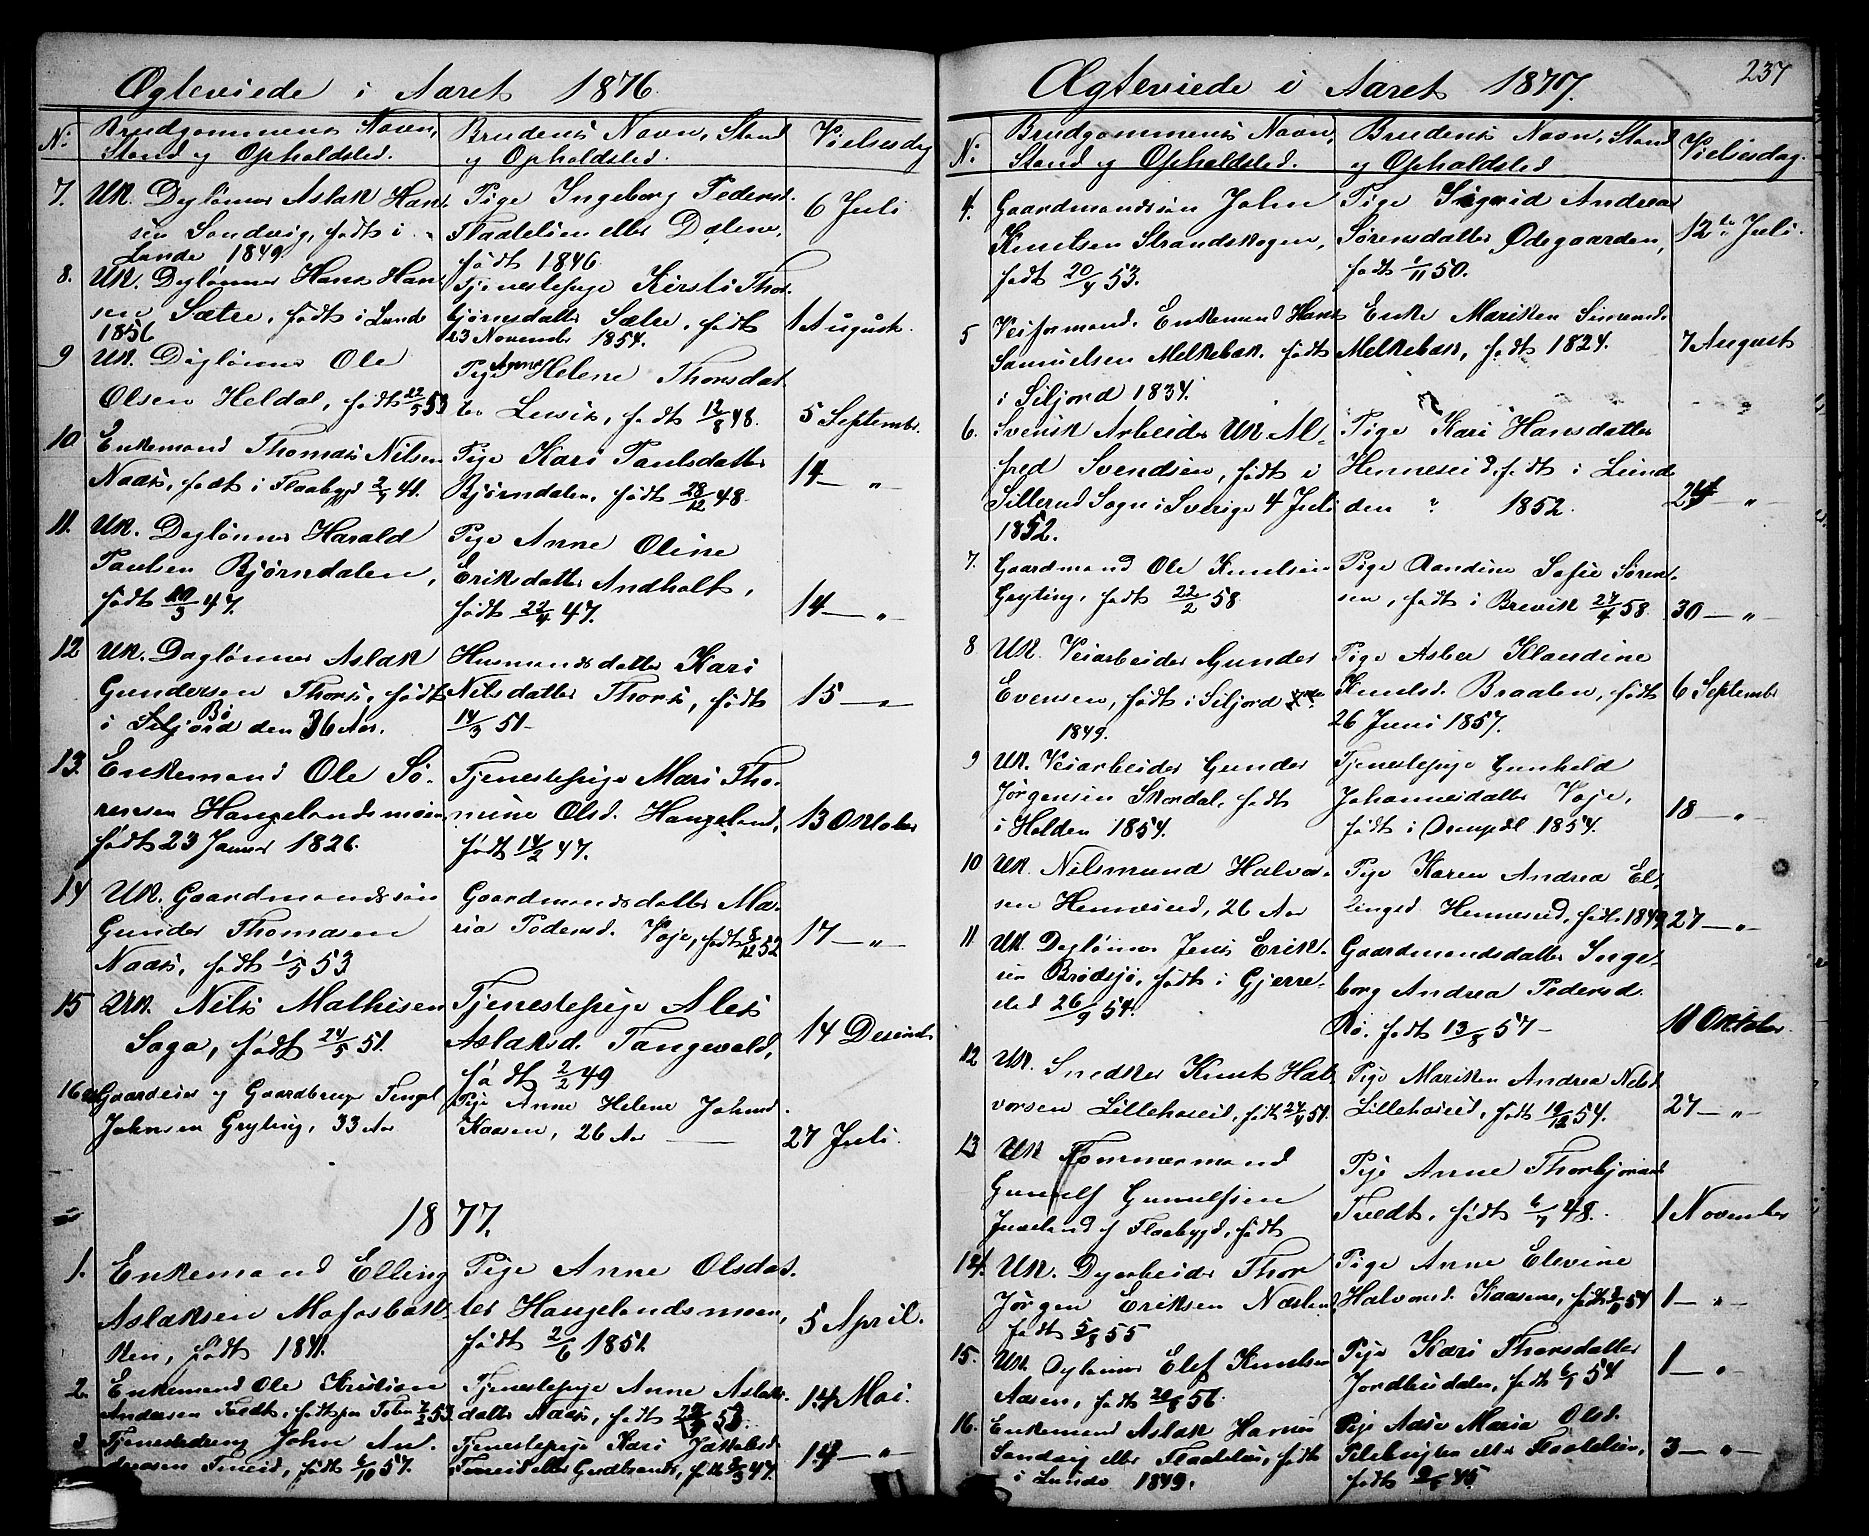 Ægteviede i Aaret 1876.
No
Brudgommens Navn,
Stand og Opholdsted.
Brudens Navn, Stand
og Opholdsted.
Vielsesdag
7.
UK. Dagløner Aslak Han-
sen Sandvig, født i
Lunde 1849
Pige Ingeborg Pedersd.
Flaatelien eller Dalene,
født 1846.
6 Juli
8.
UK. Dagløner Hans Han-
sen Sætre, født i Lunde
1856
Tjenestepige Kirsti Thor-
bjørnsdatter Sætre, født
23 Novembr 1854.
1 August.
9
UK. Dagløner Ole
Olsen Heldal, født 22/5 53
Pige Anne Helene Thorsdat
ter, født 12/8 48.
5 Septembr.
10.
Enkemand Thomas Nilsen
Naas, født i Flaabygd 2/7 41.
Pige Kari Paulsdatter
Bjørndalen, født 28/12 48.
14 — " —
11.
UK. Dagløner Harald
Paulsen Bjørndalen,
født 20/3 47.
Pige Anne Oline
Eriksdatter Andholt,
født 22/4 47.
14 — " —
12
UK. Dagløner Aslak
Gundersen Thors, født
i Siljord Bø den 36 Aar.
Husmandsdatter Kari
Nilsdatter Thors, født
14/3 51
15 — " —
13.
Enkemand Ole Sø-
rensen Haugelandsmoen
født 23 Januar 1826.
Tjenestepige Mari Tho-
mine Olsd. Haugeland,
født 14/2 47.
13 Oktober
14
UK. Gaardmandssøn
Gunder Thomasen
Naas, født 1/5 53
Gaardmandsdatter Ma-
ria Pedersd. Voje, født 8/12 52
17 — " —
15
UK. Nils Mathisen
Saga, født 24/5 51.
Tjenestepige Alet
Aslaksd. Tangevald,
født 2/2 49
14 Decembr
16
Gaardeier og Gaardbruger Tengel
Johnsen Gryting, 33 Aar
Pige Anne Helene Johnsd.
Kaasen, 26 Aar —
27 Juli.
1877.
1.
Enkemand Elling
Aslaksen Mofosbak-
ken, født 1841.
Pige Anne Olsdat-
ter Haugelandsmoen,
født 2/6 1851.
5 April.
2.
Enkemand Ole Kristian
Andersen Tvedt, født paa Toten 2/2 53
Tjenestepige Anne Aslaks-
datter Naas, født
14 Mai.
3
Tjenestedreng John An-
dersen Teneid, født 6/10 57.
Tjenestepige Kari Jakobsd.
Teneid eller Gudbrands, født 2/3 47.
14 — " —
Ægteviede i Aaret 1877.
237
No
Brudgommens Navn,
Stand og Opholdsted.
Brudens Navn, Stand
og Opholdsted
Vielsesdag.
4.
Gaardmandssøn John
Knutsen Strandskogen,
født 20/4 53.
Pige Sigrid Andrea
Sørensdatter Ødegaarden,
født 1/11 50.
12te Juli.
5
Veiformand. Enkemand Hans
Samuelsen Melkebæk. født
i Siljord 1834.
Enke Mariken Simonsd.
Melkebæk, født 1824.
7 August
6.
Svensk Arbeider UK Al-
fred Svendsen, født i
Sillerud Sogn i Sverige 4 Juli
1852.
Pige Kari Hansdatter
Henneseid, født i Lunde
den " 1852.
24 — " —
7.
Gaardmand Ole Knutsen
Gryting, født 22/2 58
Pige Aandine Sofie Søren-
sen, født i Brevik 27/4 58.
30 — " —
8
UK. Veiarbeider Gunder
Evensen, født i Siljord
1849.
Pige Asber Klandine
Knutsd. Braaten, født
26 Juni 1857.
6 Septembr
9
UK. Veiarbeider Gunder
Jørgensen Skordal, født
i Holden 1854.
Tjenestepige Gunhild
Johannesdatter Voje,
født i 1854.
18 — " —
10
UK. Nilsmund Halvor-
sen Henneseid, 26 Aar
Pige Karen Andrea El-
lingsd Henneseid, født 1849
27 — " —
11.
UK. Dagløner Jens Erik-
sen Brødsjø, født i Gjerre-
stad 26/9 54.
Gaardmandsdatter Inge-
borg Andrea Pedersd.
Rø. født 13/8 57 —
11 Oktober.
12
UK. Snedker Knut Hal-
vorsen Lillehoseid, født 24/4 51.
Pige Mariken Andrea Nilsd
Lillehoseid, født 19/12 54.
27 — " —
13
UK Tømmermand
Gunulf Gunulfsen
Juveland f Flaabygd, født
Pige Anne Thorbjørnsd
Tvedt, født 6/7 48.
1 November
14.
UK. Dgarbeider Thor
Jørgen Eriksen Næslund,
født 5/8 55
Pige Anne Elevine
Halvorsd. Kaasene, født 54
1 — " —
15.
UK. Dagløner Elef Knutsen
Aasen, født 20/8 56.
Pige Kari Thorsdatter
Jordbudalen, født 54
1 — " —
16.
Enkemand Aslak Hansen
Sandvig eller Flaatelien, født
i Lunde 1849.
Pige Aase Maria Olsd.
eller Flaatelien,
født 45.
3 — " —